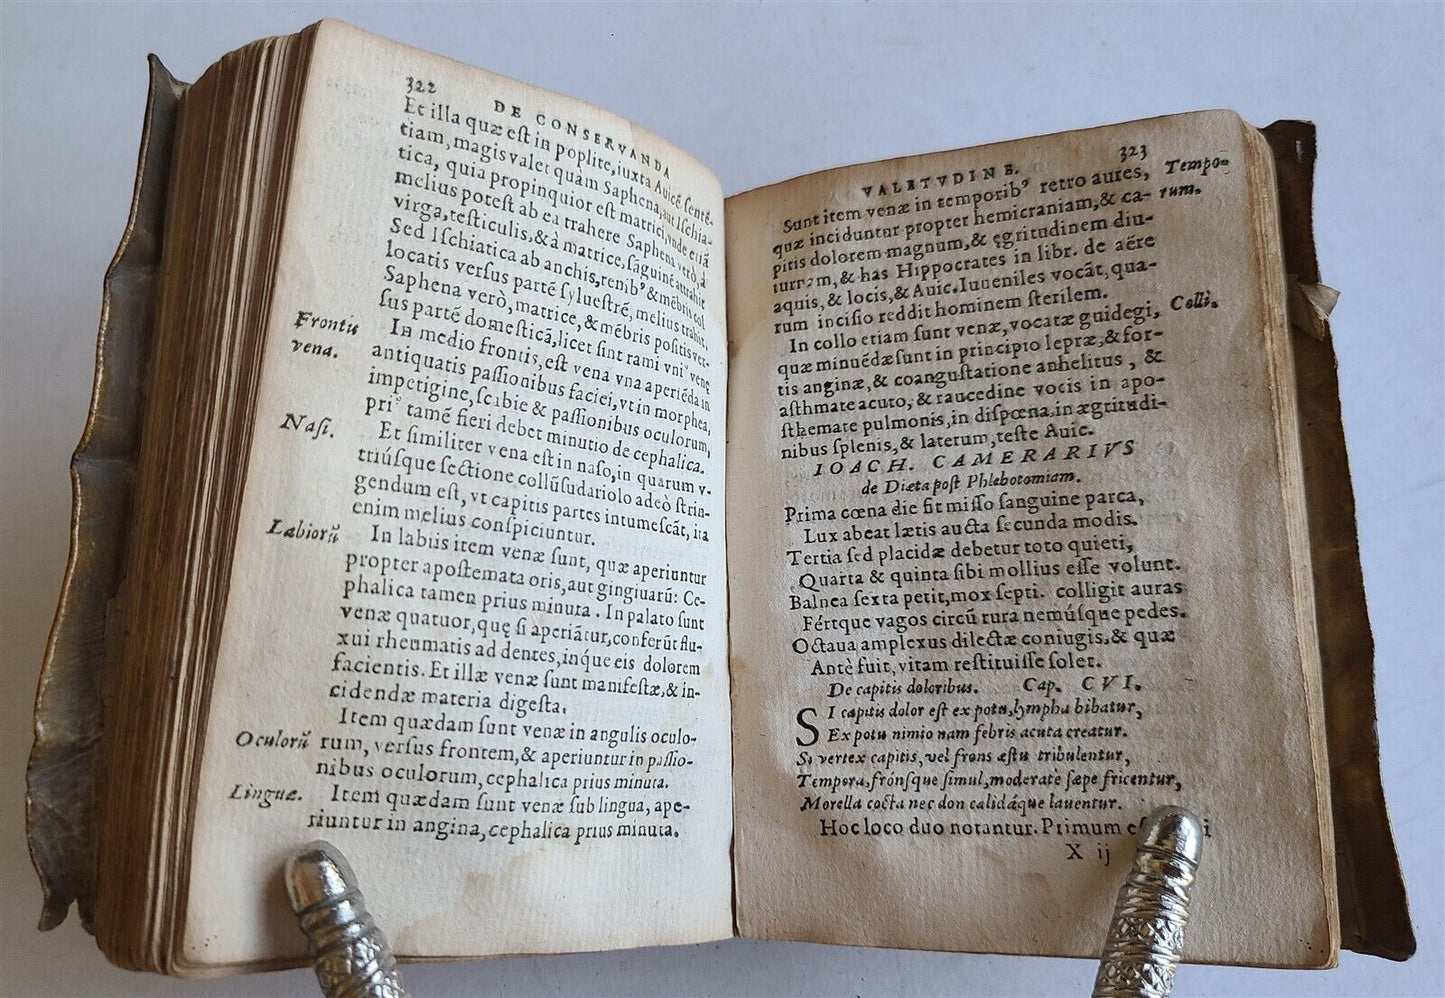 322
DE CONSERVANDA
Et illa quæ est in poplite, iuxta Avicē sentē-
tiam, magis valet quàm Saphena, aut Ischia-
tica, quia propinquior est matrici, vnde etiā
melius potest ab ea trahere Saphena verò, à
virga, testiculis, & à matrice, sāguinē attrahit
Sed Ischiatica ab anchis, renib⁹ & mēbris col
locatis versus partē sylvestrē, melius trahit.
Saphena verò, matrice, & mēbris positis ver-
sus partē domesticā, licet sint rami vni⁹ venę
Frontis
vena.
In medio frontis, est vena vna aperiēda in
antiquatis passionibus faciei, vt in morphea,
impetigine, scabie & passionibus oculorum,
pri⁹ tamē fieri debet minutio de cephalica.
Nasi.
Et similiter vena est in naso, in quarum v-
triúsque sectione collū sudariolo adeò strin-
gendum est, vt capitis partes intumescāt, ita
enim melius conspiciuntur.
Labiorū
In labiis item venæ sunt, quæ aperiuntur
propter apostemata oris, aut gingiuarū: Ce-
phalica tamen prius minuta. In palato sunt
venæ quatuor, quę si aperiātur, conferūt flu-
xui rheumatis ad dentes, inque eis dolorem
facientis. Et illæ venæ sunt manifestæ, & in-
cidendæ materia digesta.
Item quædam sunt venæ in angulis oculo-
Oculorū
rum, versus frontem, & aperiuntur in passio-
nibus oculorum, cephalica prius minuta.
Linguæ.
Item quædam sunt venæ sub lingua, ape-
riuntur in angina, cephalica prius minuta.
VALETVDINE.
323
Sunt item venæ in temporib⁹ retro aures,
Tempo-
rum.
quæ inciduntur propter hemicraniam, & ca-
pitis dolorem magnum, & ęgritudinem diu-
turnam, & has Hippocrates in libr. de aëre
aquis, & locis, & Auic. Iuueniles vocāt, qua-
rum incisio reddit hominem sterilem.
Colli.
In collo etiam sunt venæ, vocatæ guidegi,
quæ minuēdæ sunt in principio lepræ, & for-
tis anginæ, & coangustatione anhelitus, &
asthmate acuto, & raucedine vocis in apo-
sthemate pulmonis, in dispœna, in ægritudi-
nibus splenis, & laterum, teste Auic.
IOACH. CAMERARIVS
de Diæta post Phlebotomiam.
Prima cœna die fit misso sanguine parca,
Lux abeat lætis aucta secunda modis.
Tertia sed placidæ debetur toto quieti,
Quarta & quinta sibi mollius esse volunt.
Balnea sexta petit, mox septi. colligit auras
Fértque vagos circū rura nemúsque pedes.
Octaua amplexus dilectæ coniugis, & quæ
Antè fuit, vitam restituisse solet.
De capitis doloribus. Cap. CVI.
SI capitis dolor est ex potu, lympha bibatur,
Ex potu nimio nam febris acuta creatur.
Si vertex capitis, vel frons æstu tribulentur,
Tempora, frónsque simul, moderatè sæpe fricentur,
Morella cocta nec don calidáque lauentur.
Hoc loco duo notantur. Primum
X ij